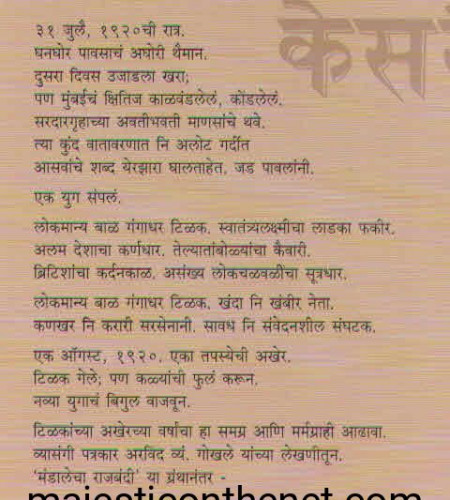 केस
३१ जुलै, १९२०ची रात्र.
घनघोर पावसाचं अघोरी थैमान.
दुसरा दिवस उजाडला खरा;
पण मुंबईचं क्षितिज काळवंडलेलं, कोंडलेलं.
सरदारगृहाच्या अवतीभवती माणसांचे थवे.
त्या कुंद वातावरणात नि अलोट गर्दीत
आसवांचे शब्द येरझारा घालताहेत, जड पावलांनी.
एक युग संपलं.
लोकमान्य बाळ गंगाधर टिळक. स्वातंत्र्यलक्ष्मीचा लाडका फकीर.
अलम देशाचा कर्णधार. तेल्यातांबोळ्यांचा कैवारी.
ब्रिटिशांचा कर्दनकाळ. असंख्य लोकचळवळींचा सूत्रधार.
लोकमान्य बाळ गंगाधर टिळक. खंदा नि खंबीर नेता.
कणखर नि करारी सरसेनानी. सावध नि संवेदनशील संघटक.
एक ऑगस्ट, १९२०. एका तपस्येची अखेर.
टिळक गेले; पण कळ्यांची फुलं करून.
नव्या युगाचं बिगुल वाजवून.
टिळकांच्या अखेरच्या वर्षाचा हा समग्र आणि मर्मग्राही आढावा.
व्यासंगी पत्रकार अरविंद व्यं. गोखले यांच्या लेखणीतून.
'मंडालेचा राजबंदी' या ग्रंथानंतर -
majesticonthenet.com